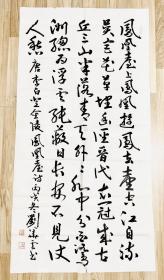 鳳凰臺上鳳凰遊鳳去臺空江自流
吳宮花草埋幽徑晉代衣冠成古
丘三山半落青天外二水中分白鷺
洲總為浮雲能蔽日長安不見使
人愁 唐李白登金陵鳳凰臺詩 劉